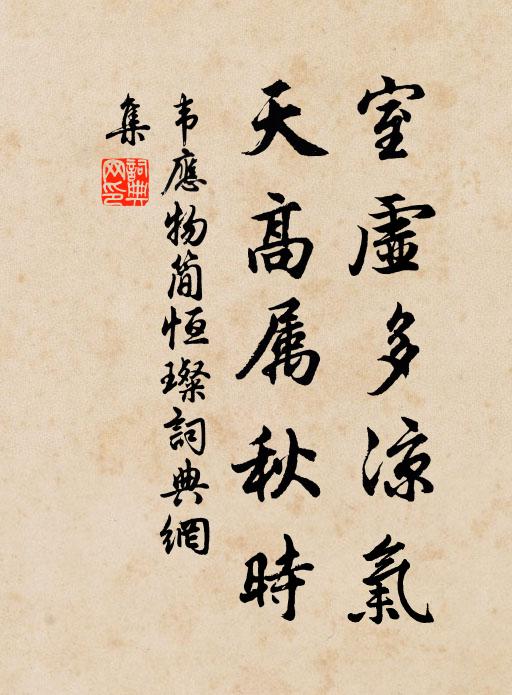 室虛多涼氣
天高属秋時
韦應物简恒璨詞典網
集
詞典
网印